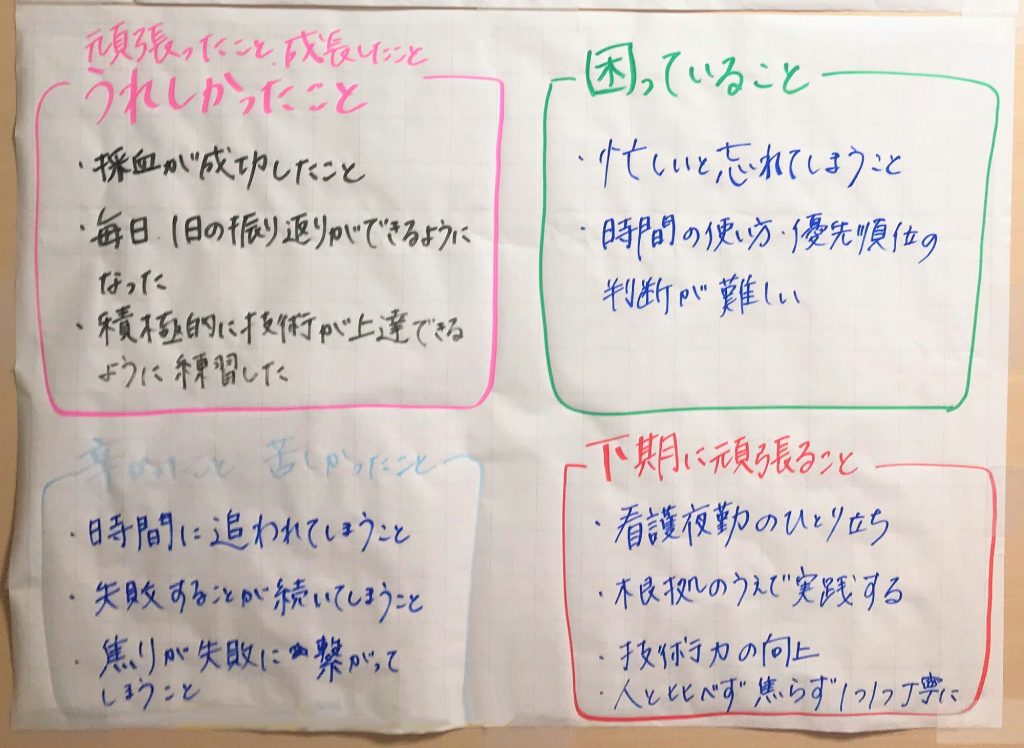 頑張ったこと、成長したこと
うれしかったこと
・採血が成功したこと
・毎日、1日の振り返りができるように
なった
・積極的に技術が上達できる
ように練習した
困っていること
・忙しいと忘れてしまうこと
・時間の使い方・優先順位の
判断が難しい
辛かったこと 苦しかったこと
・時間に追われてしまうこと
・失敗することが続いてしまうこと
・焦りが失敗に繋がって
しまうこと
下期に頑張ること
・看護夜勤のひとり立ち
・根拠のうえで実践する
・技術力の向上
・人とくらべず焦らず1つ1つ丁寧に